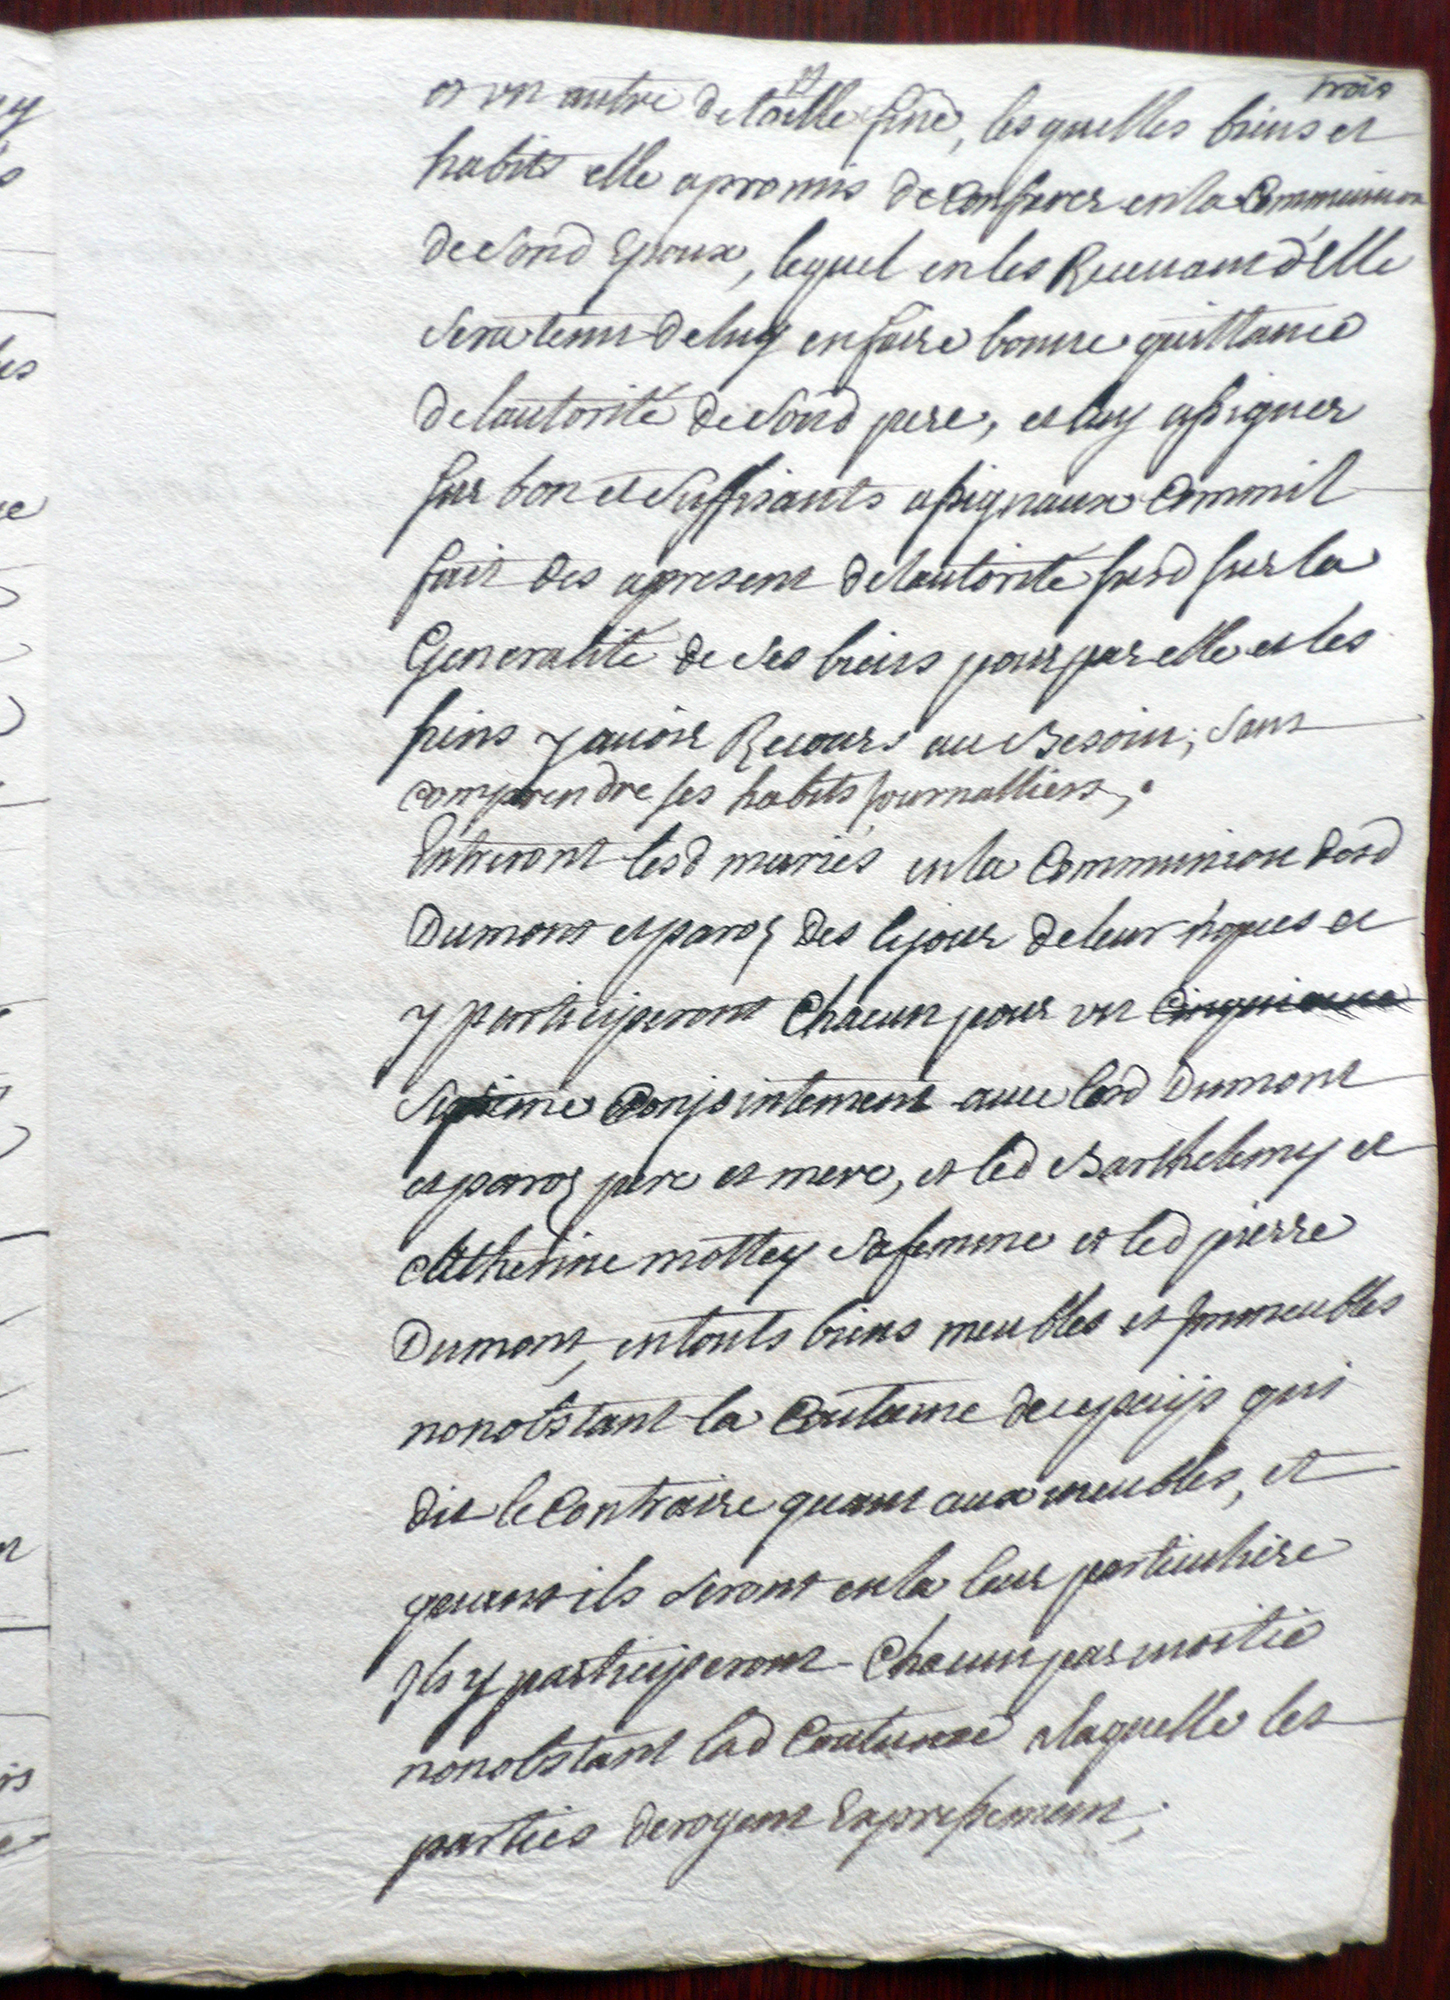 trois
et un autre de toille fine, lesquelles biens et
habits elle a promis de conferer en la Communion
de sond Epoux, lequel en les Recevant d'Elle
sera tenu de luy en faire bonne quittance
de lautorité de sond pere, et luy assigner
sur bon et suffisants assignaux comm'il
fait des apresent de lautorité susd sur la
Generalité de ses biens pour par elle et les
siens y avoir Recours au Besoin; sans
comprendre ses habits journalliers,.
Entreront lesd mariés en la Communion desd
Dumont et des le jour de leur nopces et
y participeront Chacun pour un
septiéme Conjointement avec lesd Dumont
et pere et mere, et led Barthelemy et
Catherine mottey sa femme et led pierre
Dumont, en touts biens meubles et Immeubles
nonobstant la Coutume de ce paijs qui
dit le Contraire quant aux meubles, et
quant ils seront en la leur particuliere
Ils y participeront Chacun par moitié
nonobstant lad Coutume a laquelle les
parties derogent Expressement;